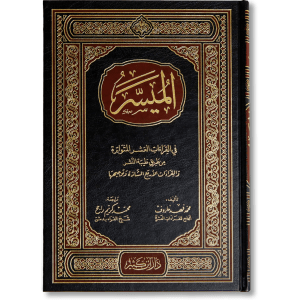 الميسر
في القراءات العشر المتواترة
من طريق طيبة النشر
والقراءات الأربع الشاذة وتوجيهها
تأليف
محمد فهد خاروف
مراجعة
محمد كريم راجح
شيخ القراء بدمشق
دار ابن كثير